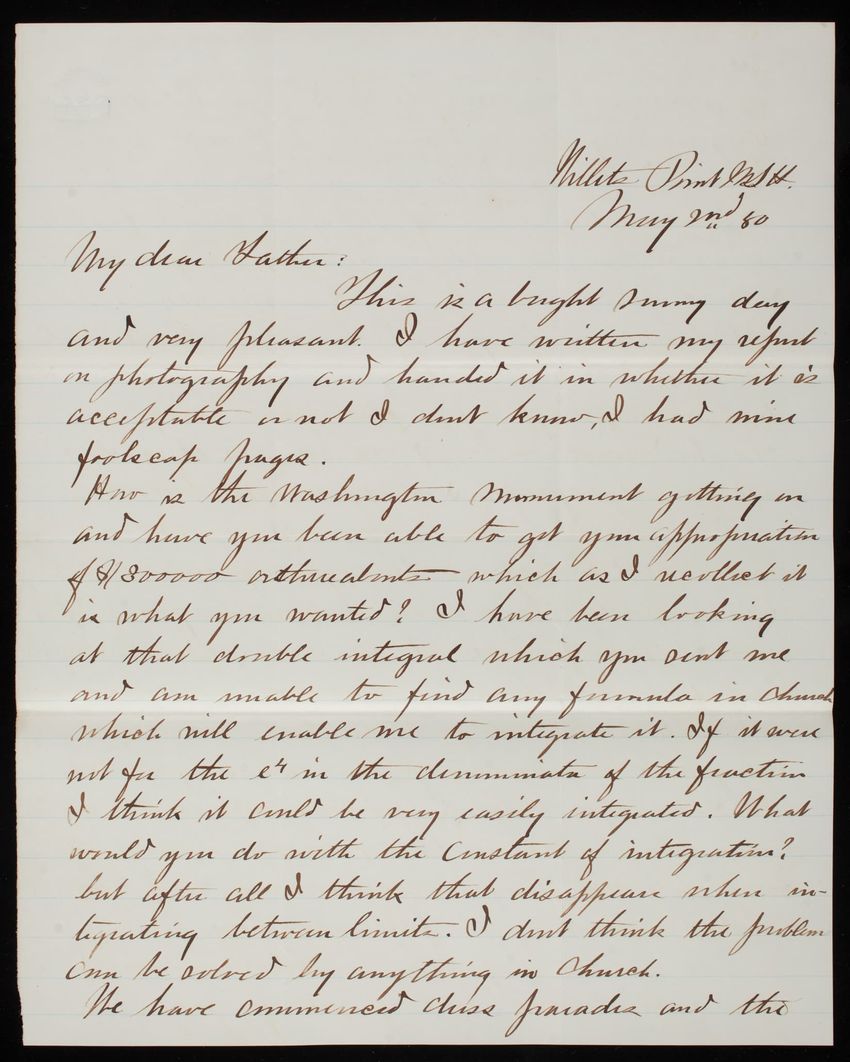 Willets Point N.Y.H.
May 2nd 80
My dear Father:
This is a bright sunny day
and very pleasant. I have written my report
on photography and handed it in whether it is
acceptable or not I dont know, I had nine
foolscap pages.
How is the Washington Monument getting on
and have you been able to get your appropriation
of $1300000 or thereabouts which as I recollect it
is what you wanted? I have been looking
at that double integral which you sent me
and am unable to find any formula in Church
which will enable me to integrate it. If it were
not for the e4 in the denominator of the fraction
I think it could be very easily integrated. What
would you do with the constant of integration?
but after all I think that disappears when in-
tegrating between limits. I dont think the problem
can be solved by anything in Church.
We have commenced dress parades and the